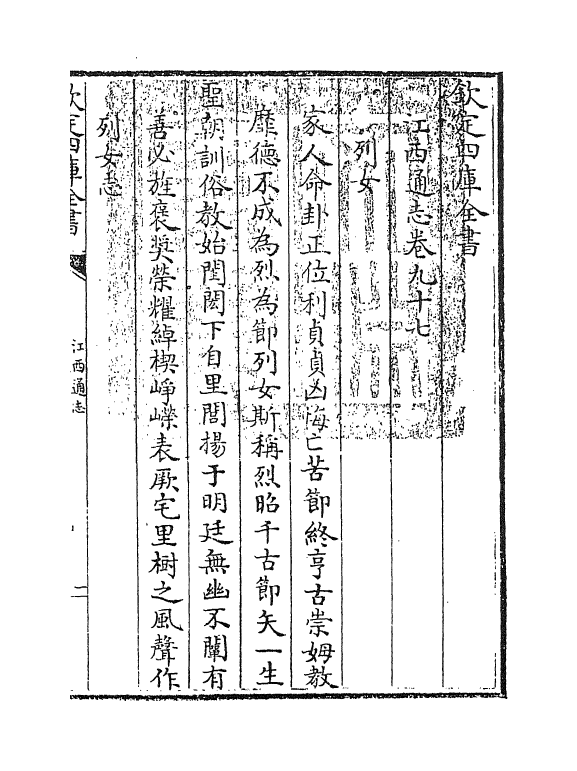 欽定四庫全書
江西通志卷九十七
列女
家人命卦正位利貞貞凶悔亡苦節終亨古崇姆教
靡德不成為烈為節列女斯稱烈昭千古節矢一生
聖朝訓俗教始閨閫下自里閭揚于明廷無幽不闡有
善必旌褒奬榮耀綽楔崢嶸表厥宅里樹之風聲作
列女志
欽定四庫全書
江西通志